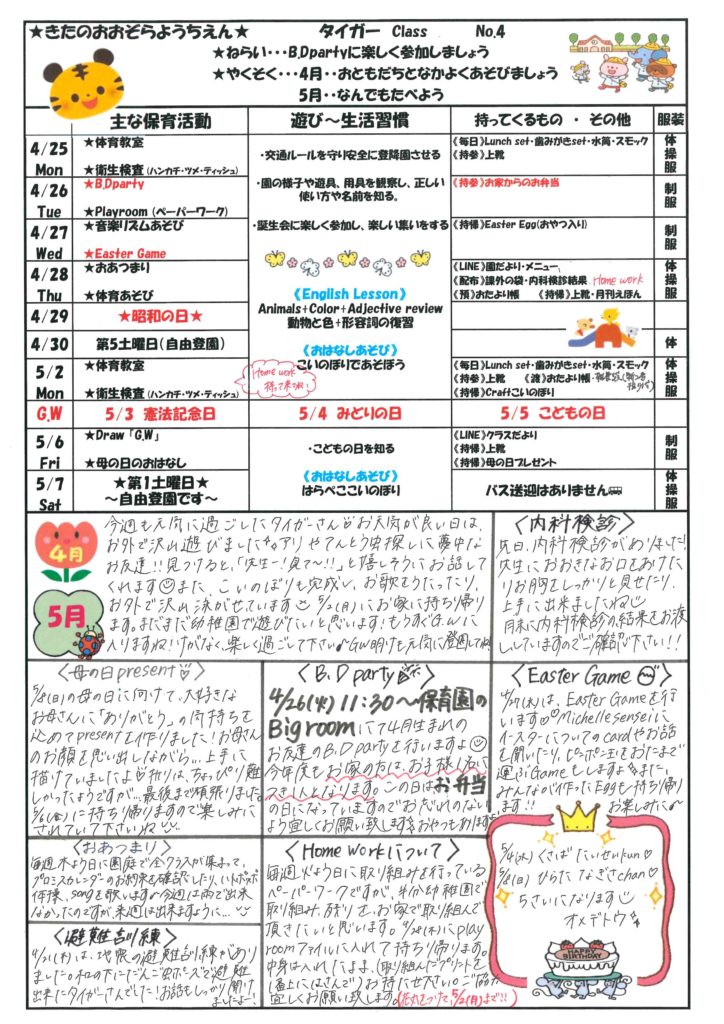 ★きたのおおぞらようちえん★ タイガー Class No.4
★ねらい・・・B.Dpartyに楽しく参加しましょう
★やくそく・・・4月・・おともだちとなかよくあそびましょう
5月・・なんでもたべよう
主な保育活動 遊び～生活習慣 持ってくるもの ・ その他 服装
4/25 Mon
★体育教室
★衛生検査(ハンカチ・ツメ・ティッシュ)
・交通ルールを守り安全に登降園させる
《毎日》Lunch set・歯みがきset・水筒・スモック
《持参》上靴
体操服
4/26 Tue
★B.Dparty
★Playroom(ペーパーワーク)
・園の様子や遊具、用具を観察し、正しい
使い方や名前を知る。
《持参》お家からのお弁当
制服
4/27 Wed
★音楽リズムあそび
★Easter Game
・誕生会に楽しく参加し、楽しい集いをする
《持帰》Easter Egg(おやつ入り)
制服
4/28 Thu
★おあつまり
★体育あそび
《English Lesson》
Animals+Color+Adjective review
動物と色+形容詞の復習
《LINE》園だより・メニュー
《配布》課外の袋・内科検診結果 Home work
《預》おたより帳 《持帰》上靴・月刊えほん
体操服
4/29 ★昭和の日★
4/30 第5土曜日(自由登園)
体
《おはなしあそび》
こいのぼりであそぼう
5/2 Mon
★体育教室
★衛生検査(ハンカチ・ツメ・ティッシュ)
Home work
持って来てね!
《毎日》Lunch set・歯みがきset・水筒・スモック
《持参》上靴 《渡》おたより帳
《持帰》Craftこいのぼり
体操服
G.W 5/3 憲法記念日 5/4 みどりの日 5/5 こどもの日
5/6 Fri
★Draw「G.W」
★母の日のおはなし
・こどもの日を知る
《LINE》クラスだより
《持帰》上靴
《持帰》母の日プレゼント
制服
5/7 Sat
★第1土曜日★
～自由登園です～
《おはなしあそび》
はらぺここいのぼり
バス送迎はありません
体操服
4月
5月
今週も元気に過ごしたタイガーさん お天気が良い日は、
お外で沢山遊びました アリやてんとう虫探しに夢中な
お友達!! 見つけると、「先生ー!見て〜!!」と嬉しそうにお話して
くれます また、こいのぼりも完成し、お歌をうたったり、
お外で沢山泳がせています 5/2(月)にお家に持ち帰り
ます。まだまだ幼稚園で遊びたいと思います!もうすぐG.Wに
入りますね!けがなく、楽しく過ごして下さい♪ GW明けも元気に登園してね
<内科検診>
先日、内科検診がありました!
先生におおきなお口をあけた
りお胸をしっかりと見せたり、
上手に出来ましたね
月末に内科検診の結果をお渡
ししていますのでご確認下さい!!
<母の日present>
5/8(日)の母の日に向けて、大好きな
お母さんに「ありがとう」の気持ちを
込めてpresentを作りました!お母さん
のお顔を思い出しながら...上手に
描けていましたよ♡ 折りは、ちょっぴり難
しかったようですが...最後まで頑張りました。
5/6(金)に持ち帰りますので楽しみに
されていて下さいね
<B.D party>
4/26(火)11:30〜保育園の
Big roomにて4月生まれの
お友達のB.D partyを行いますよ
今年度もお家の方は、お子様1名に
つき1人となります。この日はお弁当
の日になっていますのでお忘れのない
よう宜しくお願い致します おやつもあります
<Easter Game>
4/27(水)は、Easter Gameを行
います Michelle senseiに
イースターについてのcardやお話
を聞いたり、ピンポン玉をおたまで
運ぶGameもしますよ また、
みんなが作ったEggも持ち帰り
ます!! お楽しみに〜
<おあつまり>
毎週木よう日に園庭で全クラスが集まって、
プロミスカレンダーのお約束を確認したり、
体操、songを歌います♪今週は雨で出来
なかったのですが、来週は出来ますように...
<避難訓練>
4/21(木)は、地震の避難訓練があり
ました。机の下にだんご虫ポーズで避難
出来たタイガーさんでした!お話もしっかり聞け
ましたよー!
<Home workについて>
毎週火よう日に取り組みを行っている
ペーパーワークですが、半分幼稚園で
取り組み、残りを、お家で取り組んで
頂きたいと思います。4/28(木)にplay
roomファイルに入れて持ち帰ります。
中身は入れたまま、(取り組んだプリントを
(一番上にはさんで)お持たせ下さい。ご協力
宜しくお願い致します。(花丸をつけて、5/2(月)まで!!)
5/4(水)くさば たいせいkun♡
5/8(日)ひらた なぎさchan♡
5さいになります
オメデトウ
HAPPY
BIRTHDAY